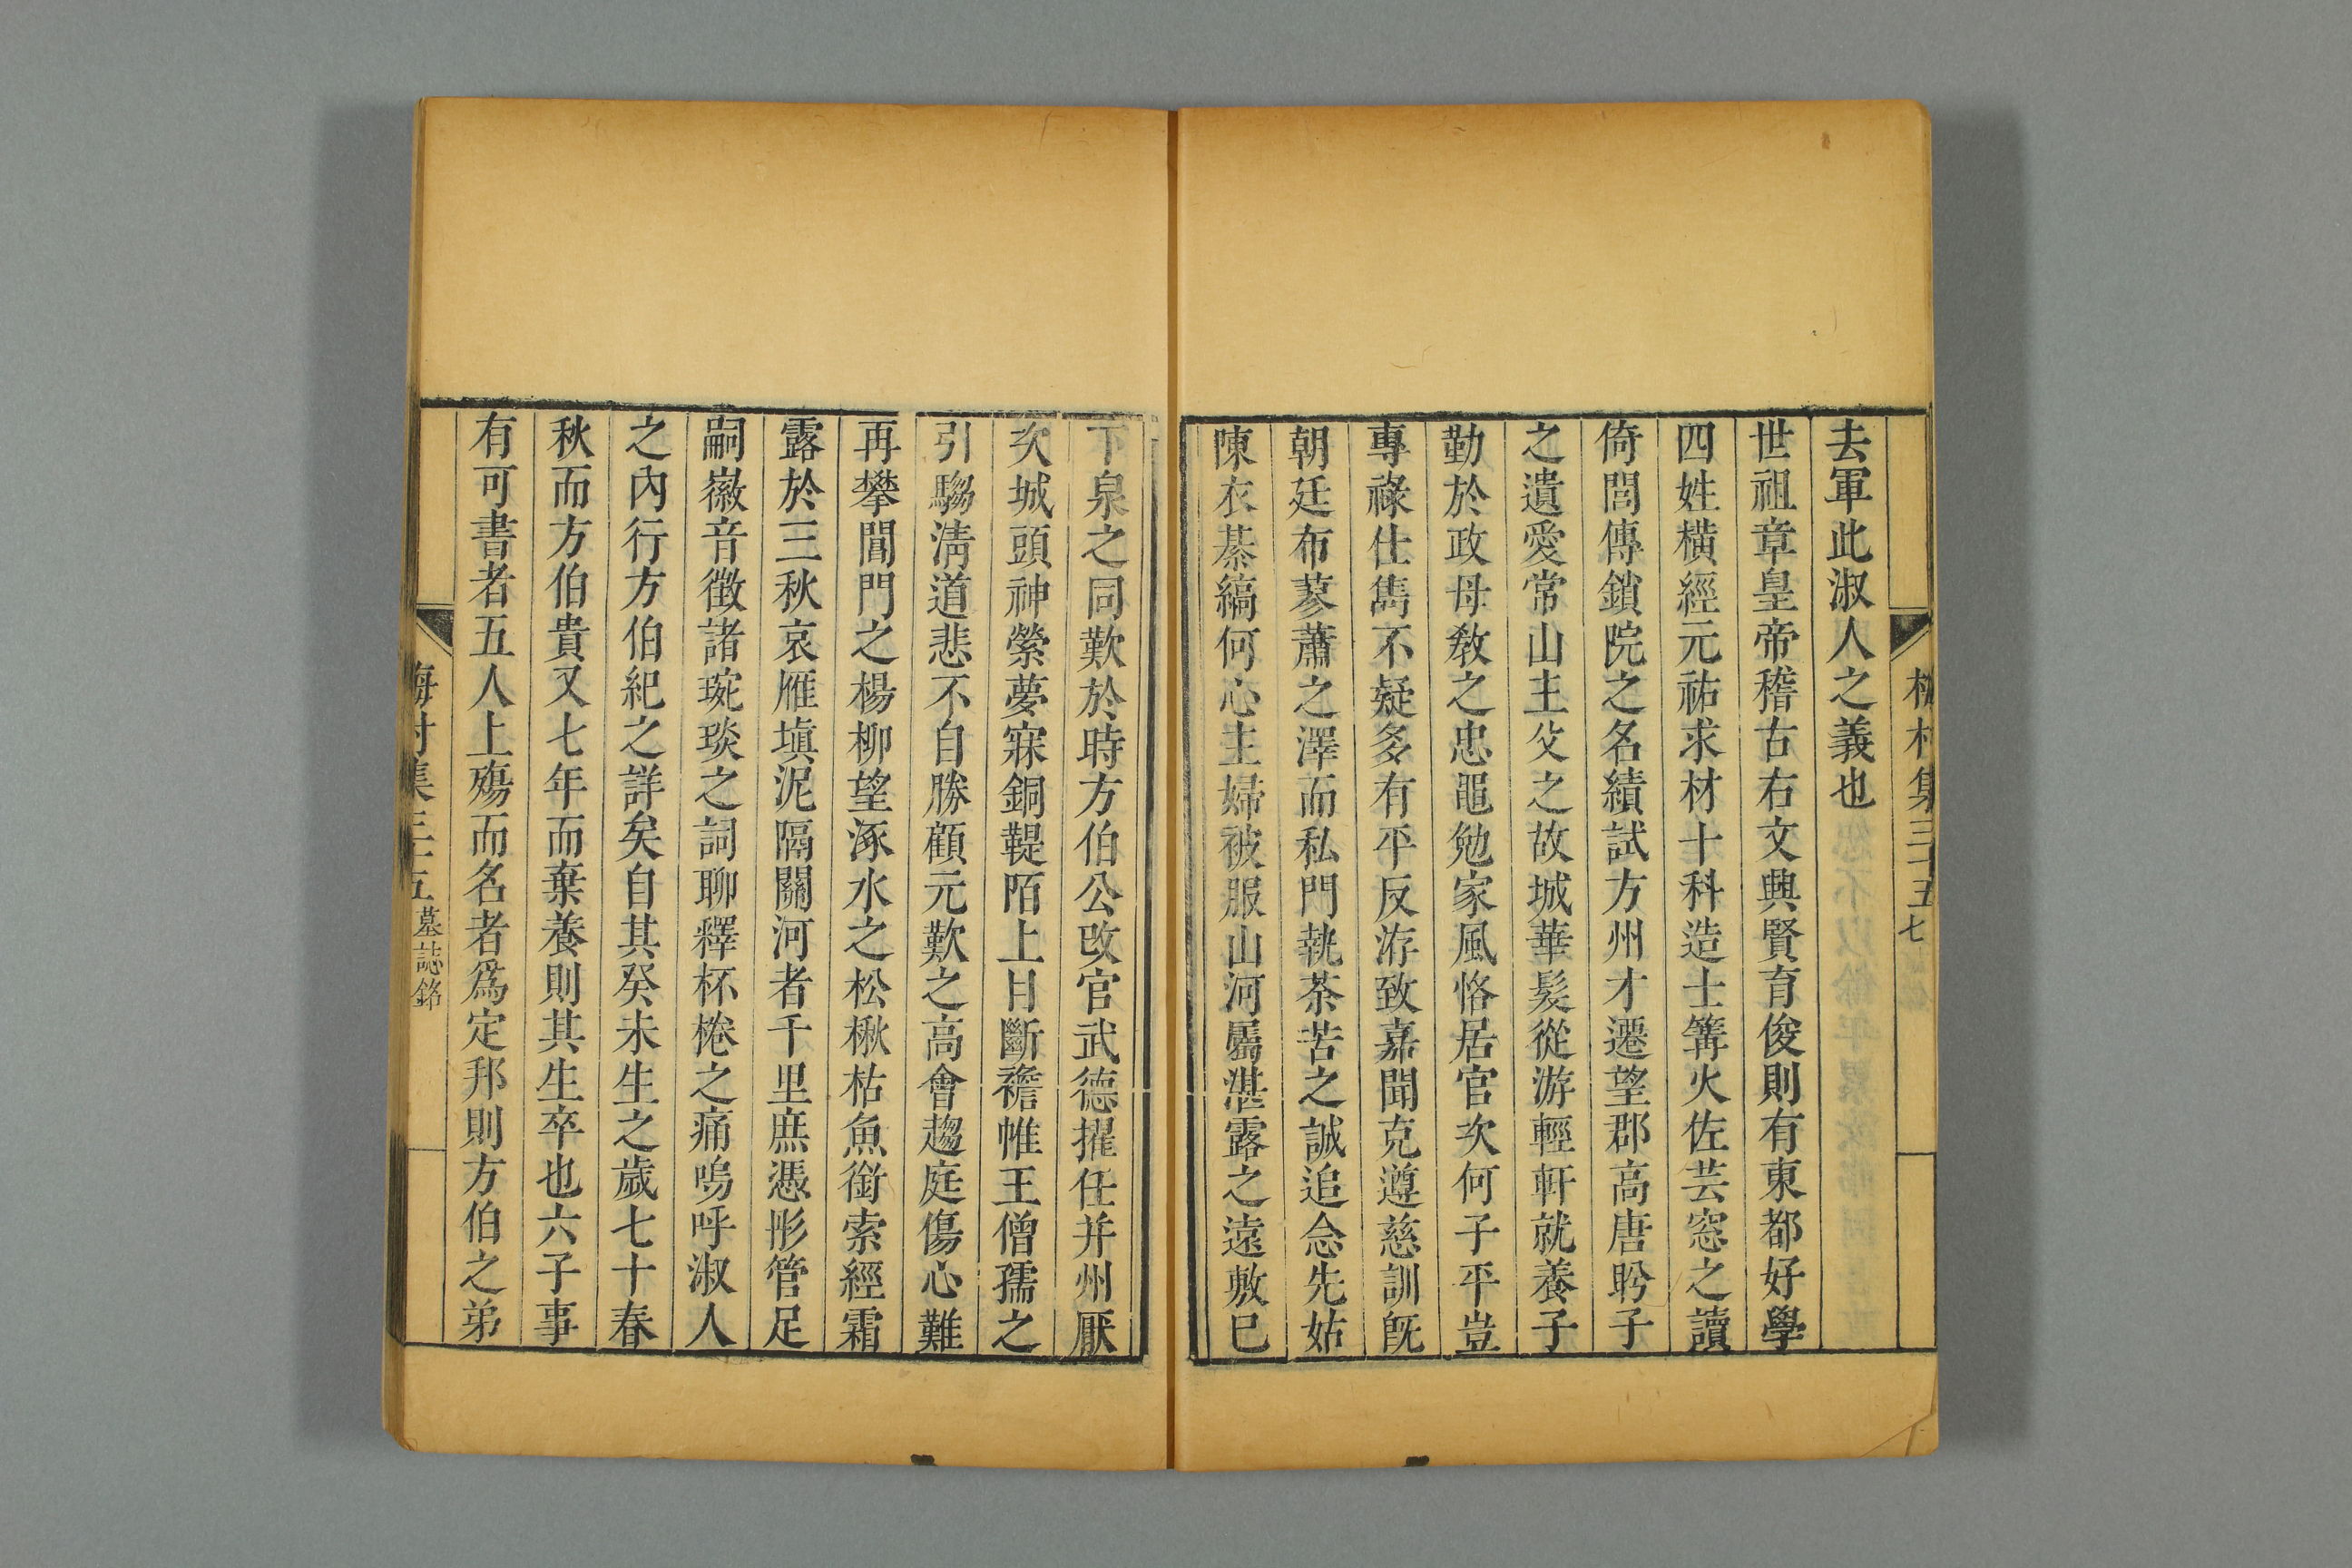 梅村集三十五 七
去軍此淑人之義也
世祖章皇帝稽古右文興賢育俊則有東都好學
四姓橫經元祐求材十科造士篝火佐芸窓之讀
倚閭傳鎖院之名績試方州才遷望郡高唐盻子
之遺愛常山主父之故城華髮從游輕軒就養子
勤於政母敎之忠黽勉家風恪居官次何子平豈
專祿仕雋不疑多有平反洊致嘉聞克遵慈訓旣
朝廷布蓼蕭之澤而私門執荼苦之誠追念先姑
陳衣綦縞何心主婦被服山河屬湛露之遠敷已
下泉之同歎於時方伯公改官武德擢任并州厭
次城頭神縈夢寐銅鞮陌上目斷襜帷王僧孺之
引騶淸道悲不自勝顧元歎之高會趨庭傷心難
再攀閶門之楊柳望涿水之松楸枯魚銜索經霜
露於三秋哀雁塡泥隔關河者千里庶憑彤管足
嗣徽音徵諸琬琰之詞聊釋杯棬之痛嗚呼淑人
之內行方伯紀之詳矣自其癸未生之歲七十春
秋而方伯貴又七年而棄養則其生卒也六子事
有可書者五人上殤而名者爲定邦則方伯之弟
梅村集三十五 墓誌銘